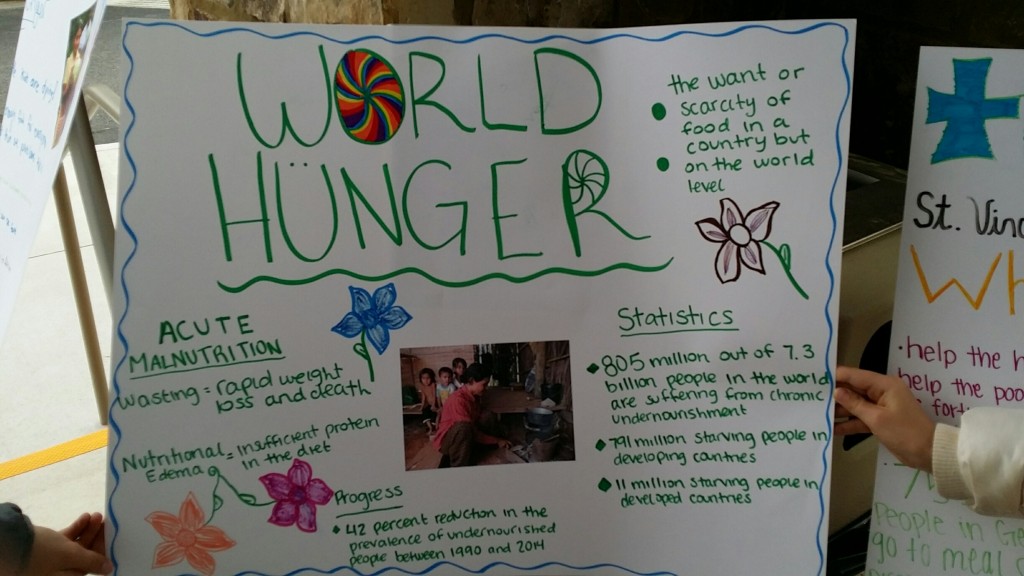 WORLD
HÜNGER
the want or
scarcity of
food in a
country but
on the world
level
ACUTE
MALNUTRITION
Wasting = rapid weight
loss and death
Nutritional = insufficient protein
Edema in the diet
Progress
42 percent reduction in the
prevalence of undernourished
people between 1990 and 2014
Statistics
805 million out of 7.3
billion people in the world
are suffering from chronic
undernourishment
791 million starving people in
developing countries
11 million starving people in
developed countries
St. Vinc
Wh
help the h
help the poo
people in Ge
go to meal